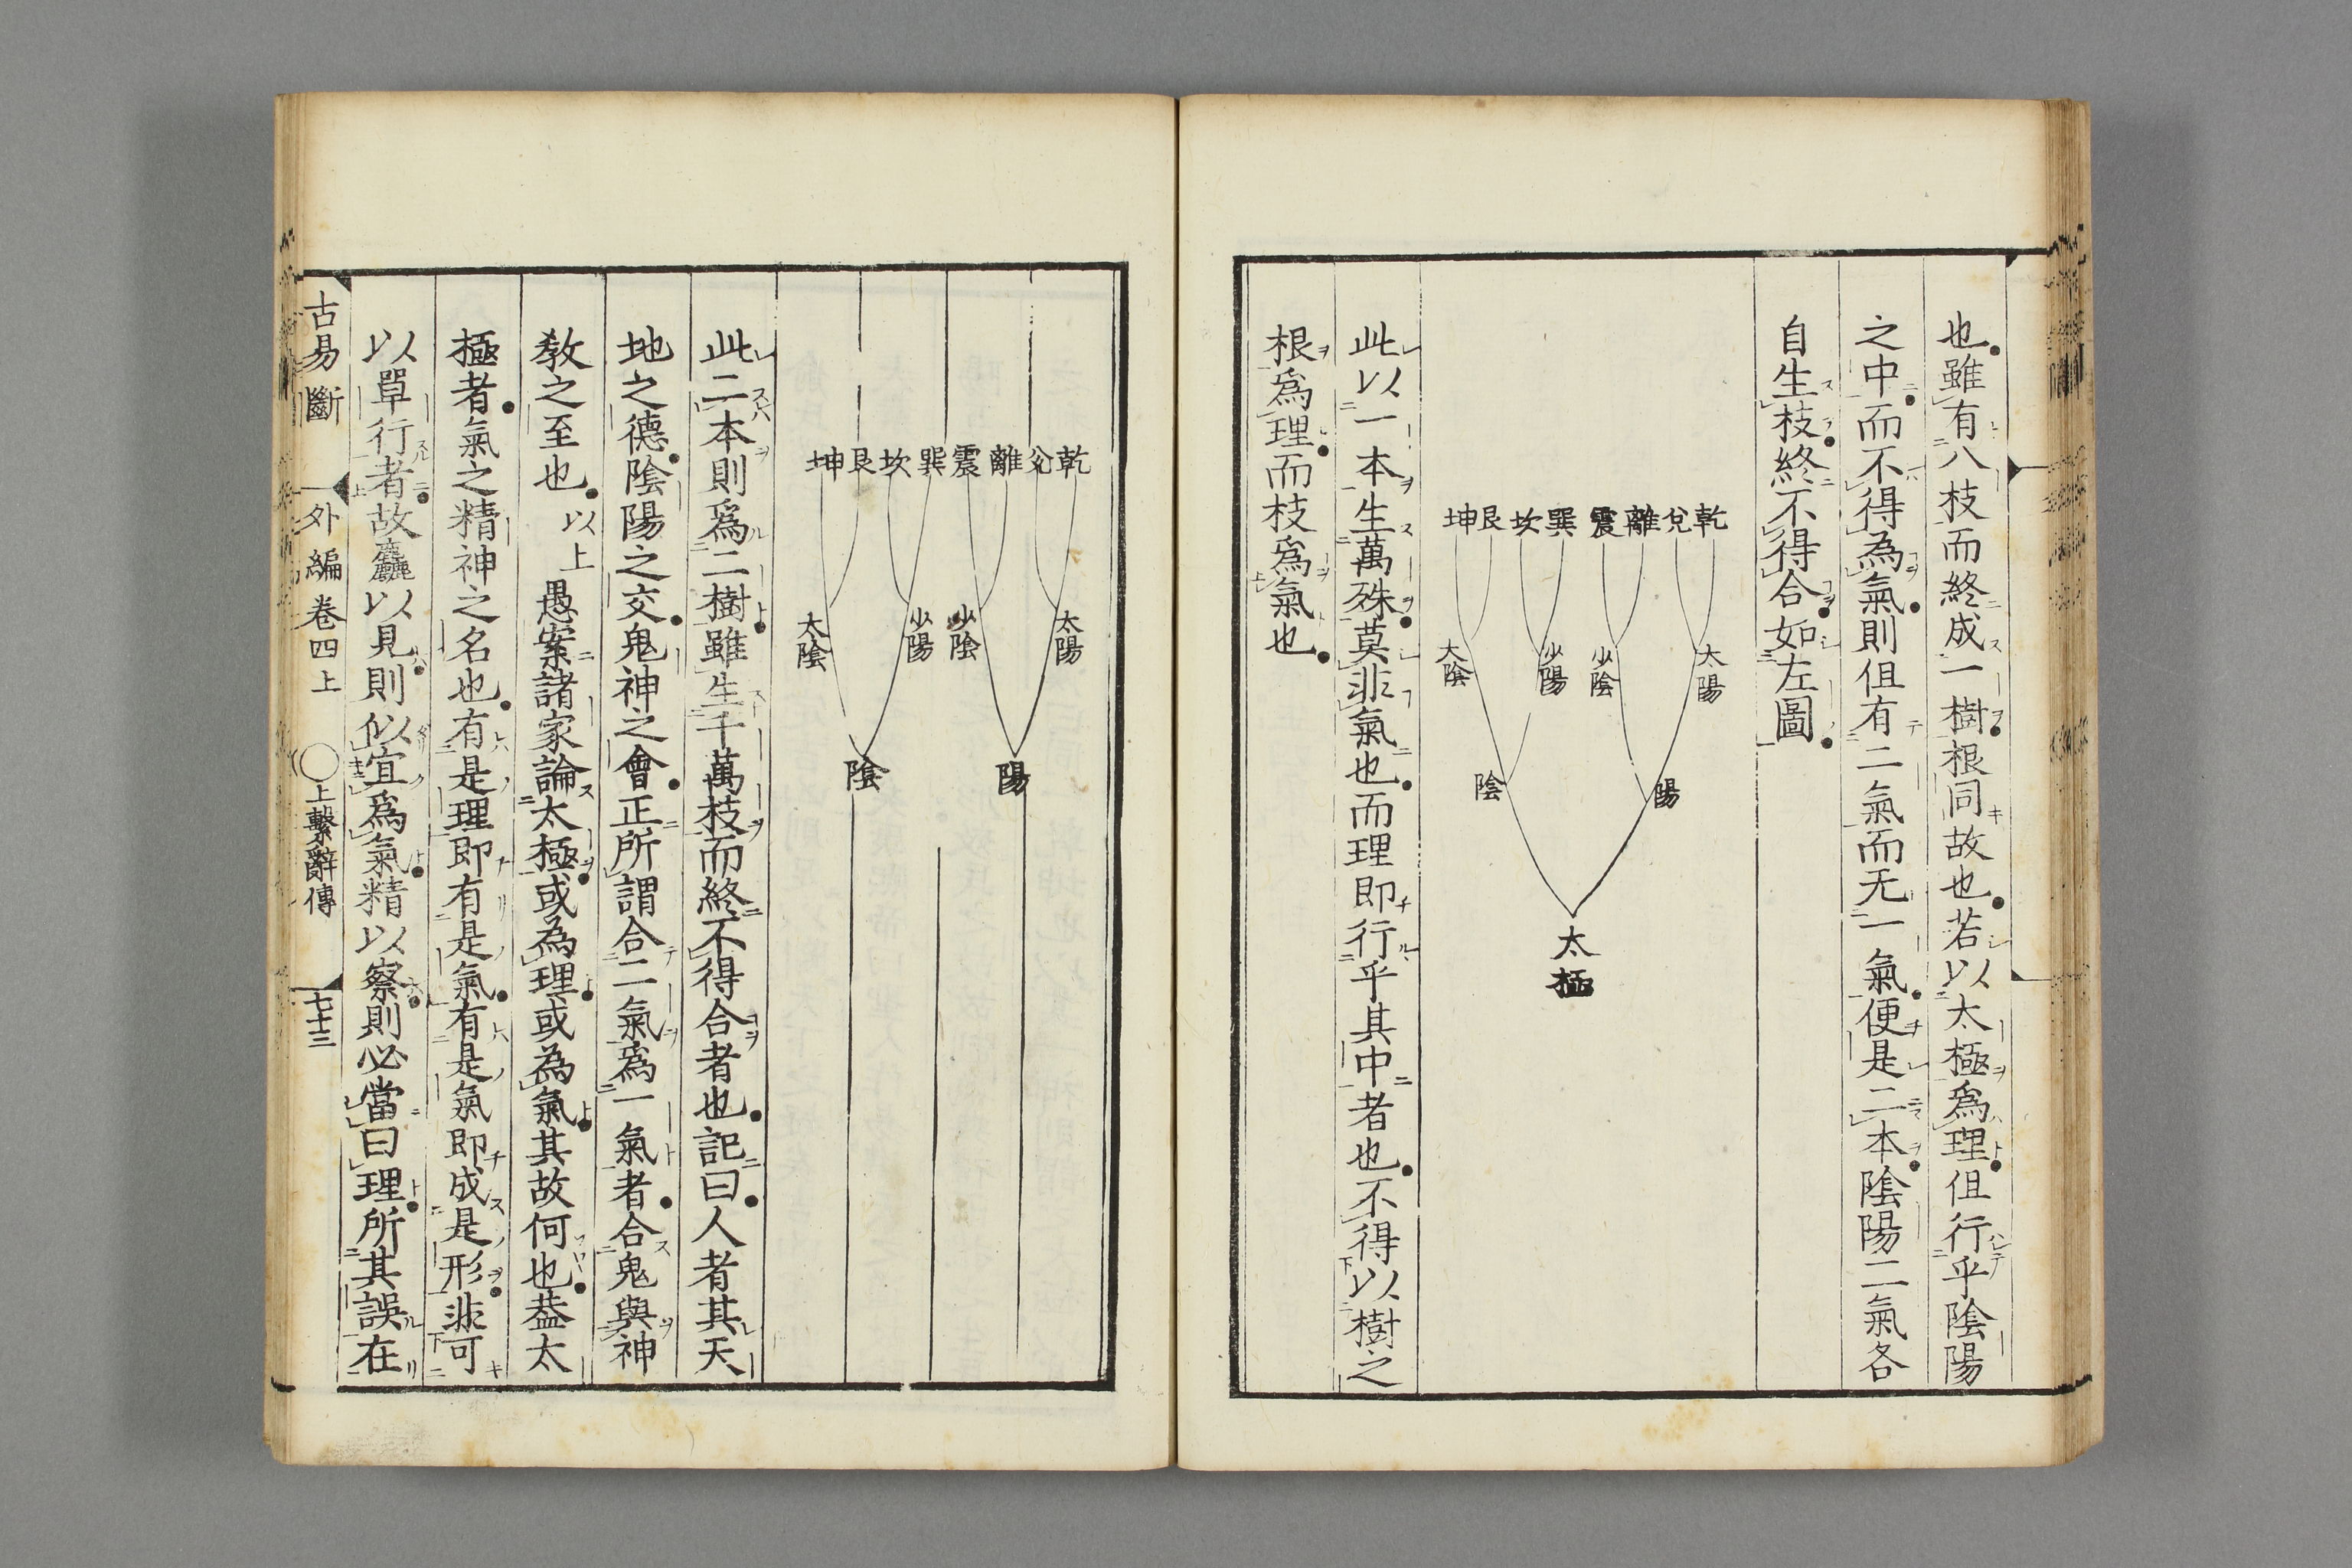 也雖有八枝而終成一樹根同故也若以太極爲理伹行乎陰陽
之中而不得為氣則伹有二氣而无一氣便是二本陰陽二氣各
自生枝終不得合如左圖
乾兌離震巽坎艮坤
太陽 少陰 少陽 太陰
陽 陰
太極
此以一本生萬殊莫非氣也而理即行乎其中者也不得以樹之
根爲理而枝爲氣也
乾兌離震巽坎艮坤
太陽 少陰 少陽 太陰
陽 陰
此二本則爲二樹雖生千萬枝而終不得合者也記曰人者其天
地之德陰陽之交鬼神之會正所謂合二氣爲一氣者合鬼與神
教之至也以上愚案諸家論太極或為理或為氣其故何也葢太
極者氣之精神之名也有是理即有是氣有是氣即成是形非可
以單行者故麤以見則似宜爲氣精以察則必當曰理所其誤在
古易斷 外編卷四上 ○上繫辭傳 七十三